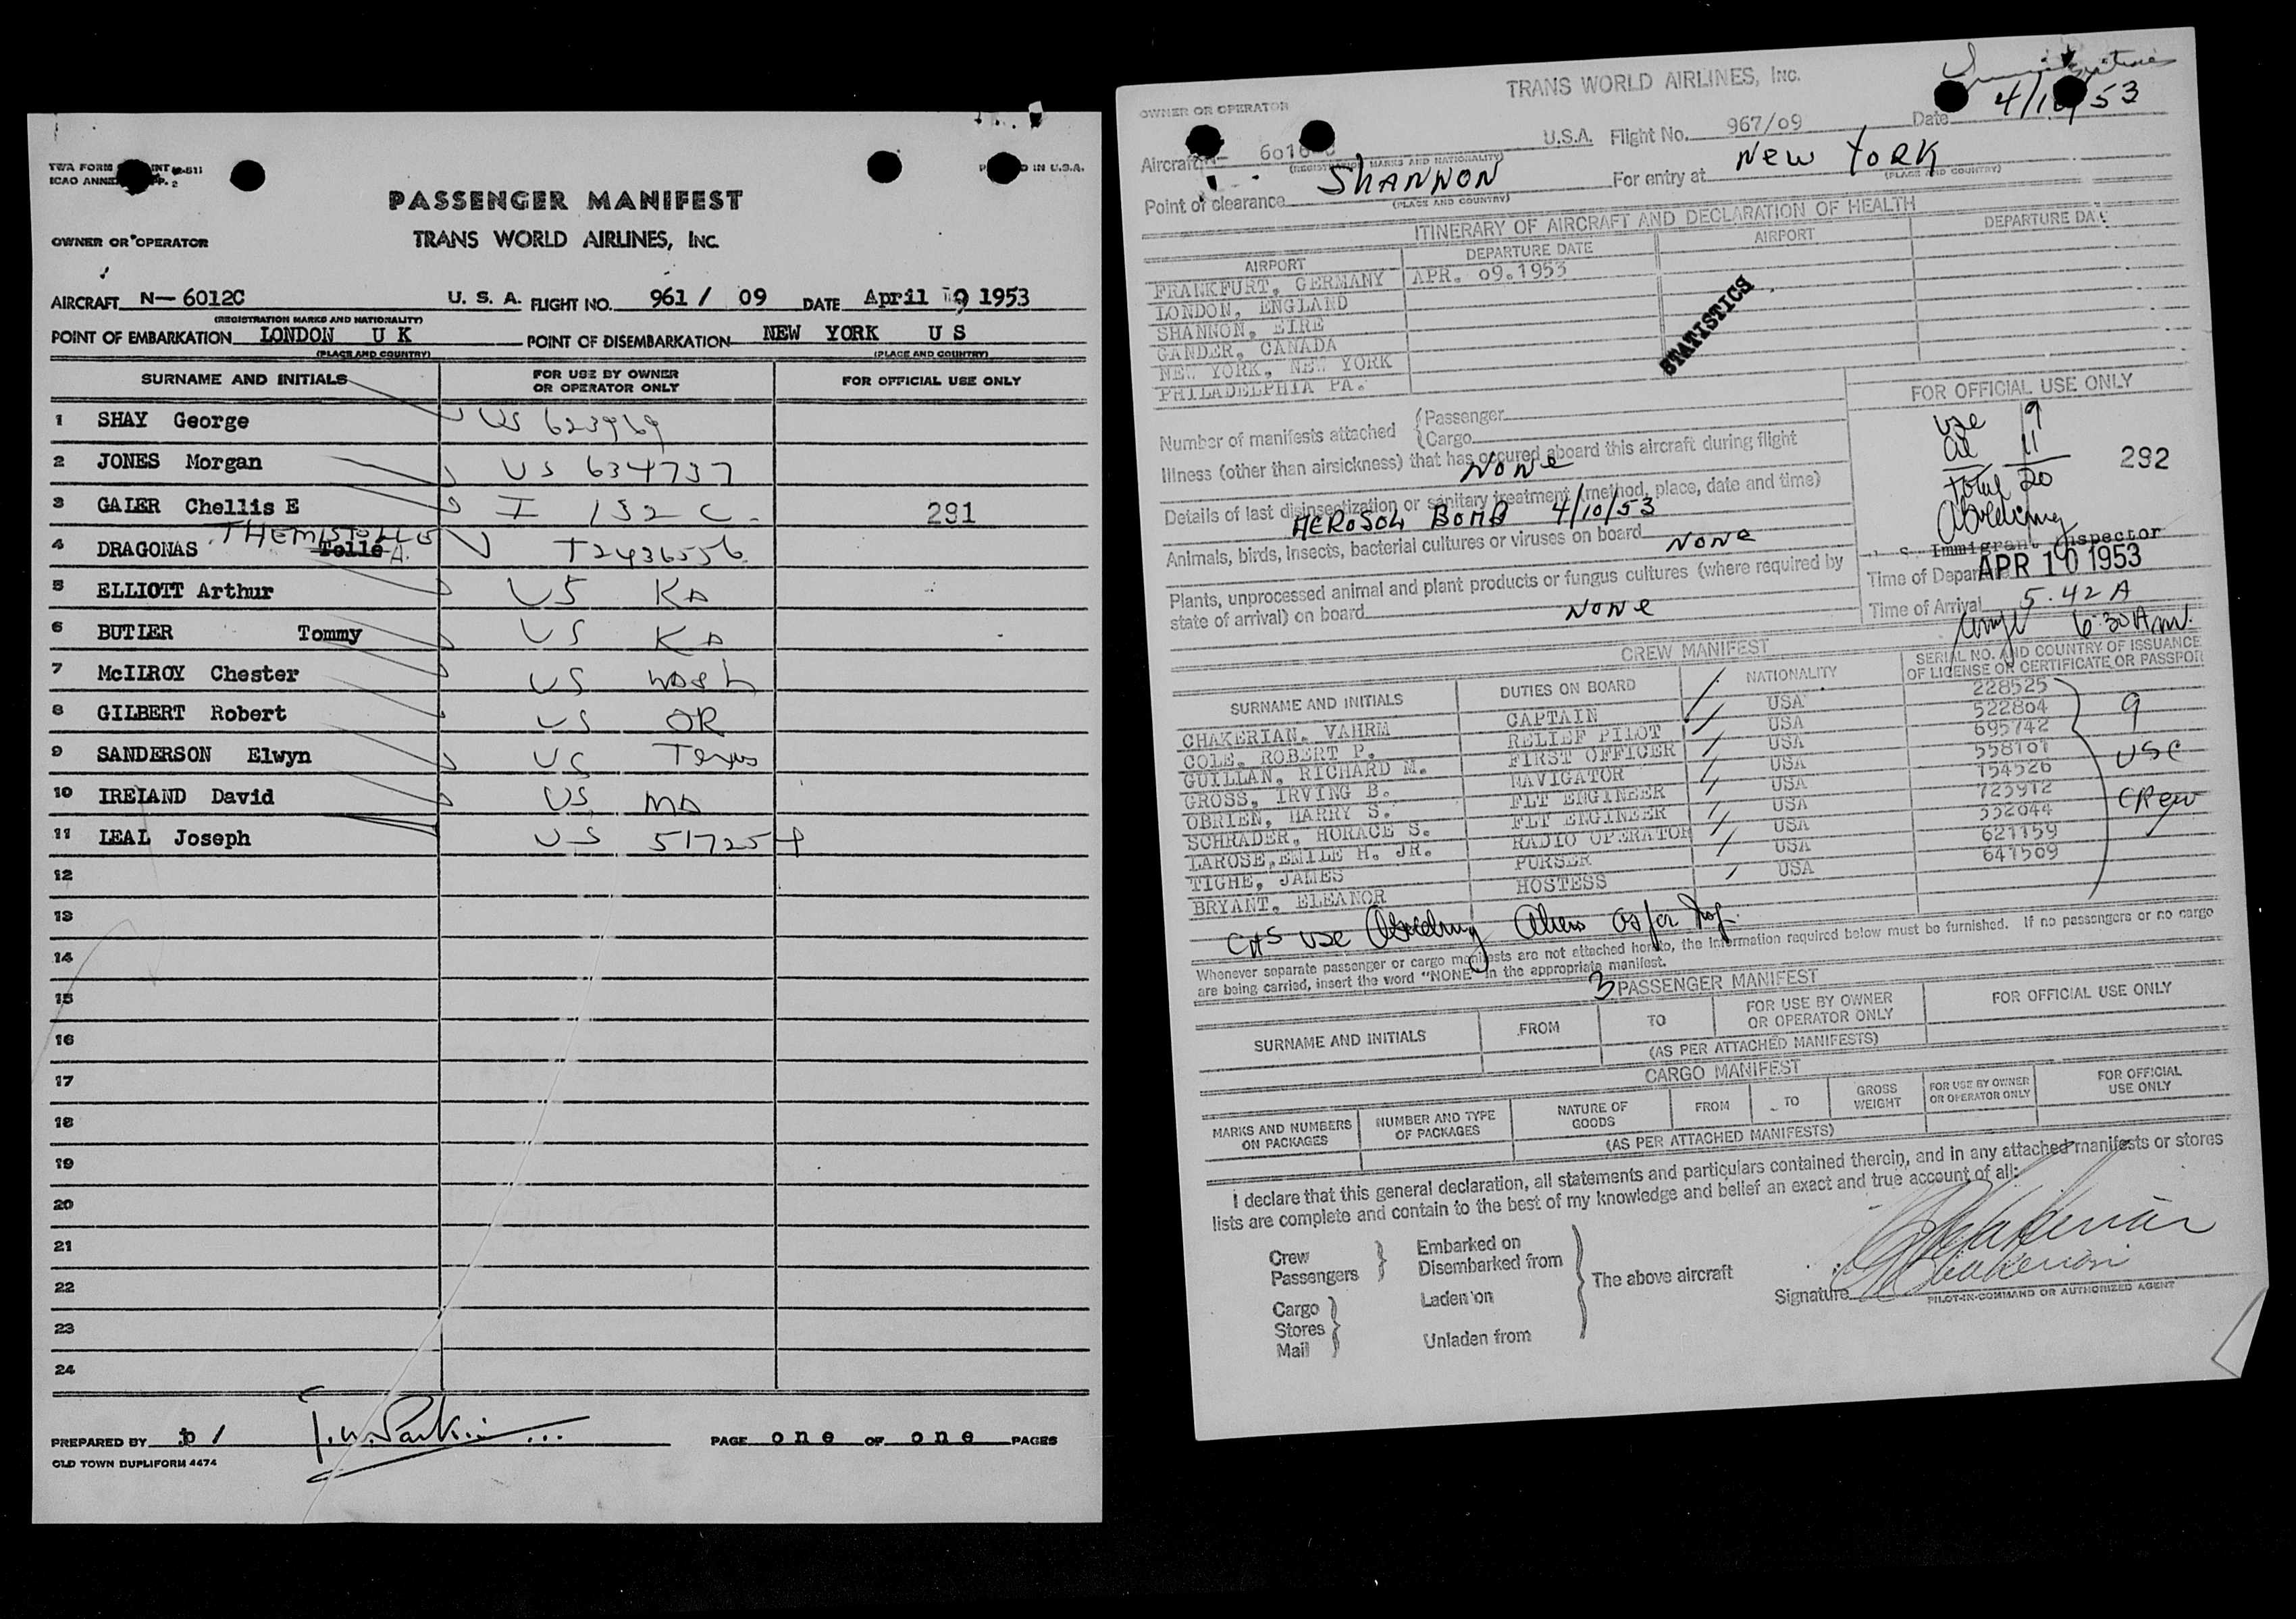 TWA FORM INT
ICAO ANNEX APP. 2
IN U.S.A.
PASSENGER MANIFEST
OWNER OR OPERATOR
TRANS WORLD AIRLINES, INC.
AIRCRAFT N-6012C U. S. A. FLIGHT NO. 961 / 09 DATE April 9 1953
(REGISTRATION MARKS AND NATIONALITY)
POINT OF EMBARKATION LONDON U K POINT OF DISEMBARKATION NEW YORK U S
(PLACE AND COUNTRY) (PLACE AND COUNTRY)
SURNAME AND INITIALS FOR USE BY OWNER OR OPERATOR ONLY FOR OFFICIAL USE ONLY
1 SHAY George US 623969
2 JONES Morgan US 634737
3 GALER Chellis E I 152 C. 291
THEMISTOLLE
4 DRAGONAS Tolle A. T2436556
5 ELLIOTT Arthur US Ka
6 BUTLER Tommy US Ka
7 McILROY Chester US Wash
8 GILBERT Robert US OR
9 SANDERSON Elwyn US Texas
10 IRELAND David US MD
11 LEAL Joseph US 517254
12
13
14
15
16
17
18
19
20
21
22
23
24
PREPARED BY
PAGE one OF one PAGES
OLD TOWN DUPLIFORM 4474
TRANS WORLD AIRLINES, INC.
OWNER OR OPERATOR
Aircraft N- U.S.A. Flight No. 967/09 Date 4/10/53
(REGISTRATION MARKS AND NATIONALITY)
Point of clearance SHANNON For entry at New York
(PLACE AND COUNTRY) (PLACE AND COUNTRY)
ITINERARY OF AIRCRAFT AND DECLARATION OF HEALTH
AIRPORT DEPARTURE DATE AIRPORT DEPARTURE DATE
FRANKFURT, GERMANY APR. 09.1953
LONDON, ENGLAND
SHANNON, EIRE
GANDER, CANADA
NEW YORK, NEW YORK
PHILADELPHIA PA.
STATISTICS
FOR OFFICIAL USE ONLY
Number of manifests attached {Passenger
{Cargo
usc 9
al 11
Total 20
292
Illness (other than airsickness) that has occured aboard this aircraft during flight
None
Details of last disinsectization or sanitary treatment (method, place, date and time)
AEROSOL BOMB 4/10/53
Animals, birds, insects, bacterial cultures or viruses on board None
U. S. Immigrant Inspector
APR 10 1953
Plants, unprocessed animal and plant products or fungus cultures (where required by
state of arrival) on board None
Time of Departure
Time of Arrival 5.42 A
6:30 Am.
CREW MANIFEST
SURNAME AND INITIALS DUTIES ON BOARD NATIONALITY SERIAL NO. AND COUNTRY OF ISSUANCE OF LICENSE OR CERTIFICATE OR PASSPORT
CHAKERIAN, VAHRM CAPTAIN USA 228525
COLE, ROBERT P. RELIEF PILOT USA 522804
GUILLAN, RICHARD M. FIRST OFFICER USA 695742
GROSS, IRVING B. NAVIGATOR USA 558101
OBRIEN, HARRY S. FLT ENGINEER USA 154526
SCHRADER, HORACE S. FLT ENGINEER USA 723912
LAROSE,EMILE H. JR. RADIO OPERATOR USA 332044
TIGHE, JAMES PURSER USA 621159
BRYANT, ELEANOR HOSTESS USA 641509
9
USC
CREW
Whenever separate passenger or cargo manifests are not attached hereto, the information required below must be furnished. If no passengers or no cargo
are being carried, insert the word "NONE" in the appropriate manifest.
3 PASSENGER MANIFEST
SURNAME AND INITIALS FROM TO FOR USE BY OWNER OR OPERATOR ONLY FOR OFFICIAL USE ONLY
(AS PER ATTACHED MANIFESTS)
CARGO MANIFEST
MARKS AND NUMBERS ON PACKAGES NUMBER AND TYPE OF PACKAGES NATURE OF GOODS FROM TO GROSS WEIGHT FOR USE BY OWNER OR OPERATOR ONLY FOR OFFICIAL USE ONLY
(AS PER ATTACHED MANIFESTS)
I declare that this general declaration, all statements and particulars contained therein, and in any attached manifests or stores
lists are complete and contain to the best of my knowledge and belief an exact and true account of all:
Crew Embarked on
Passengers Disembarked from
The above aircraft
Cargo Laden on
Stores
Mail Unladen from
Signature
PILOT-IN-COMMAND OR AUTHORIZED AGENT